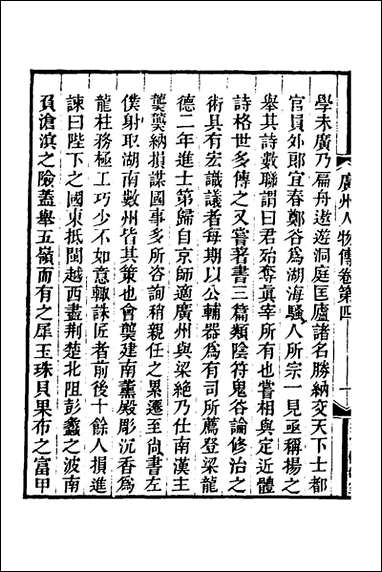 廣州人物傳卷第四
學未廣乃扁舟遨遊洞庭匡廬諸名勝納交天下士都
官員外郎宜春鄭谷為湖海騷人所宗一見亟稱揚之
舉其詩數聯謂曰君殆奪真宰所有也嘗相與定近體
詩格世多傳之又嘗著書三篇類陰符鬼谷論修治之
術具有宏識議者每期以公輔器為有司所薦登梁龍
德二年進士第歸自京師適廣州與梁絕乃仕南漢主
龑龑納損謀國事多所咨詢稍親任之累遷至尚書左
僕射取湖南數州皆其策也會龑建南薰殿彫沉香為
龍柱務極工巧少不如意輒誅匠者前後十餘人損進
諫曰陛下之國東抵閩越西盡荆楚北阻彭蠡之波南
負滄溟之險蓋舉五嶺而有之犀玉珠貝果布之富甲